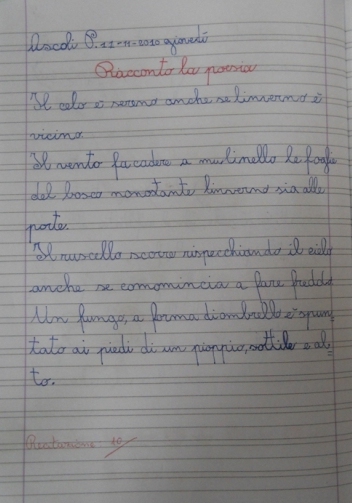 Ascoli P. 11-11-2010 giovedì
Racconto la poesia
Il celo è sereno anche se linverno è
vicino.
Il vento fa cadere a mulinello le fogli
del bosco nonostante linverno sia alle
porte.
Il ruscello scorre rispecchiando il cielo
anche se comomincia a fare freddo.
Un fungo, a forma di ombrello è spun-
tato ai piedi di un pioppio, sottile e al-
to.
10